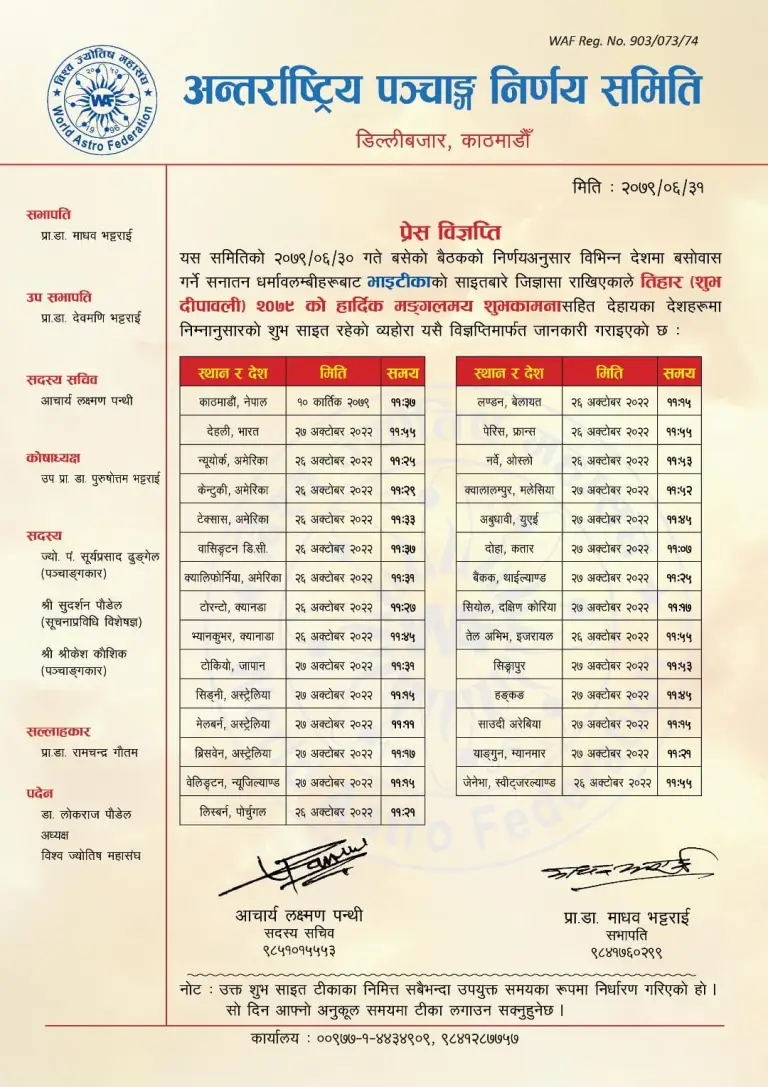 WAF Reg. No. 903/073/74
विश्व ज्योतिष महासंघ
WAF
1996
World Astro Federation
अन्तर्राष्ट्रिय पञ्चाङ्ग निर्णय समिति
डिल्लीबजार, काठमाडौँ
मिति : २०७९/०६/३१
सभापति
प्रा.डा. माधव भट्टराई
उप सभापति
प्रा.डा. देवमणि भट्टराई
सदस्य सचिव
आचार्य लक्ष्मण पन्थी
कोषाध्यक्ष
उप प्रा. डा. पुरुषोत्तम भट्टराई
सदस्य
ज्यो. पं. सूर्यप्रसाद ढुङ्गेल
(पञ्चाङ्गकार)
श्री सुदर्शन पौडेल
(सूचनाप्रविधि विशेषज्ञ)
श्री श्रीकेश कौशिक
(पञ्चाङ्गकार)
सल्लाहकार
प्रा.डा. रामचन्द्र गौतम
पदेन
डा. लोकराज पौडेल
अध्यक्ष
विश्व ज्योतिष महासंघ
प्रेस विज्ञप्ति
यस समितिको २०७९/०६/३० गते बसेको बैठकको निर्णयअनुसार विभिन्न देशमा बसोवास
गर्ने सनातन धर्मावलम्बीहरूबाट भाइटीकाको साइतबारे जिज्ञासा राखिएकाले तिहार (शुभ
दीपावली) २०७९ को हार्दिक मङ्गलमय शुभकामनासहित देहायका देशहरूमा
निम्नानुसारको शुभ साइत रहेको व्यहोरा यसै विज्ञप्तिमार्फत जानकारी गराइएको छ :
स्थान र देश मिति समय
काठमाडौं, नेपाल १० कार्तिक २०७९ ११:३७
देहली, भारत २७ अक्टोबर २०२२ ११:५५
न्यूयोर्क, अमेरिका २६ अक्टोबर २०२२ ११:२५
केन्टुकी, अमेरिका २६ अक्टोबर २०२२ ११:२९
टेक्सास, अमेरिका २६ अक्टोबर २०२२ ११:३३
वासिङ्टन डि.सी. २६ अक्टोबर २०२२ ११:३७
क्यालिफोर्निया, अमेरिका २६ अक्टोबर २०२२ ११:३१
टोरन्टो, क्यानडा २६ अक्टोबर २०२२ ११:२७
भ्यानकुभर, क्यानाडा २६ अक्टोबर २०२२ ११:४५
टोकियो, जापान २७ अक्टोबर २०२२ ११:३१
सिड्नी, अस्ट्रेलिया २७ अक्टोबर २०२२ ११:१५
मेलबर्न, अस्ट्रेलिया २७ अक्टोबर २०२२ ११:११
ब्रिसवेन, अस्ट्रेलिया २७ अक्टोबर २०२२ ११:१७
वेलिङ्टन, न्यूजिल्याण्ड २७ अक्टोबर २०२२ ११:१५
लिस्बर्न, पोर्चुगल २६ अक्टोबर २०२२ ११:२१
स्थान र देश मिति समय
लण्डन, बेलायत २६ अक्टोबर २०२२ ११:१५
पेरिस, फ्रान्स २६ अक्टोबर २०२२ ११:५५
नर्वे, ओस्लो २६ अक्टोबर २०२२ ११:५३
क्वालालम्पुर, मलेसिया २७ अक्टोबर २०२२ ११:५२
अबुधावी, युएई २७ अक्टोबर २०२२ ११:४५
दोहा, कतार २७ अक्टोबर २०२२ ११:०७
बैंकक, थाईल्याण्ड २७ अक्टोबर २०२२ ११:२५
सियोल, दक्षिण कोरिया २७ अक्टोबर २०२२ ११:१७
तेल अभिभ, इजरायल २६ अक्टोबर २०२२ ११:५५
सिङ्गापुर २७ अक्टोबर २०२२ ११:५३
हङ्कङ २७ अक्टोबर २०२२ ११:४५
साउदी अरेबिया २७ अक्टोबर २०२२ ११:१५
याङ्गुन, म्यानमार २७ अक्टोबर २०२२ ११:२१
जेनेभा, स्वीट्जरल्याण्ड २६ अक्टोबर २०२२ ११:५५
आचार्य लक्ष्मण पन्थी
सदस्य सचिव
९८५१०१५५५३
प्रा.डा. माधव भट्टराई
सभापति
९८४१७६०२९९
नोट : उक्त शुभ साइत टीकाका निमित्त सबैभन्दा उपयुक्त समयका रूपमा निर्धारण गरिएको हो ।
सो दिन आफ्नो अनुकूल समयमा टीका लगाउन सक्नुहुनेछ ।
कार्यालय : ००९७७-१-४४३४९०९, ९८४१२८७७५७